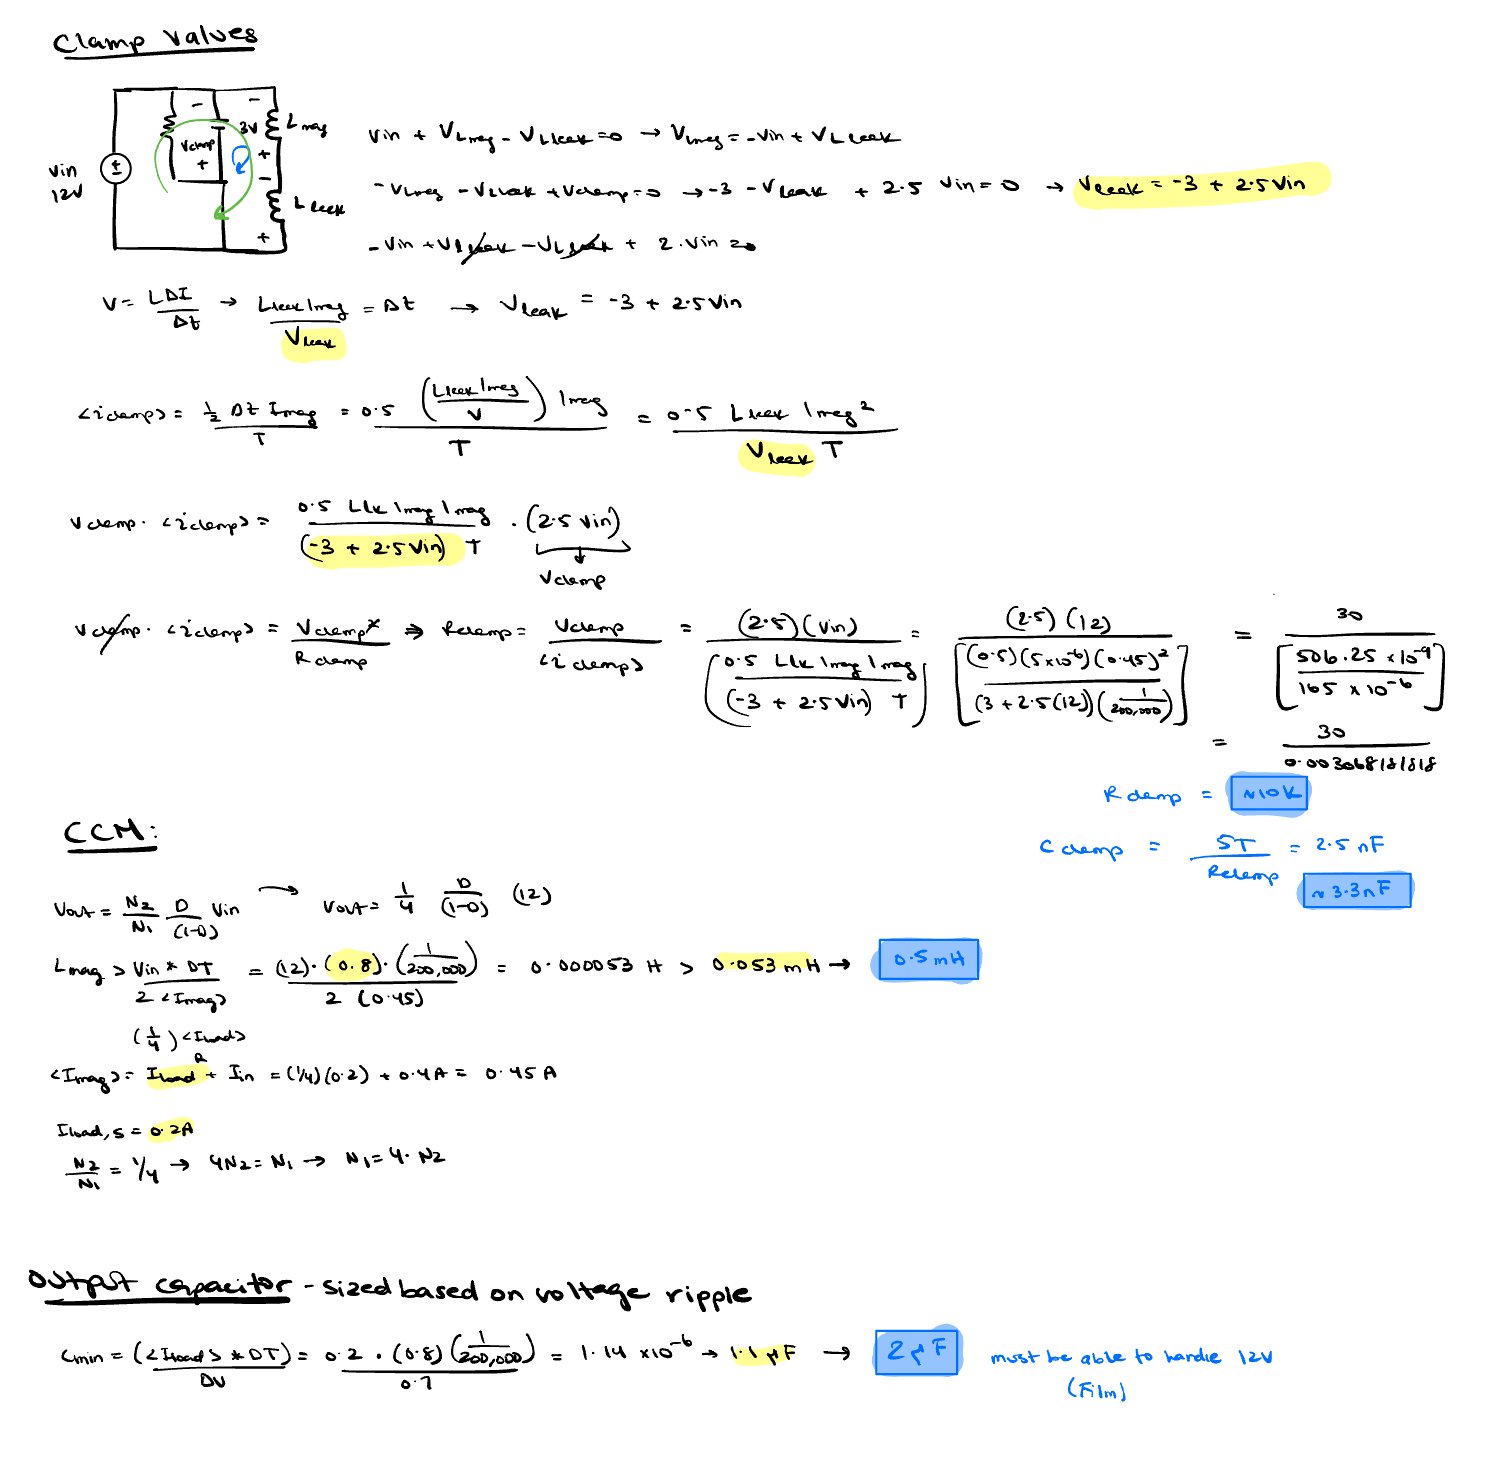 Clamp Values
Vin
12V
Vclamp
3V
Lmag
Lleak
Vin + VLmag - VLleak = 0 → VLmag = -Vin + VLleak
-VLmag - VLleak + Vclamp = 0 → -3 - Vleak + 2.5 Vin = 0 → Vleak = -3 + 2.5 Vin
-Vin + VLleak - VLleak + 2.Vin = 0
V = LΔI/Δt → Lleak Imag/Vleak = Δt → Vleak = -3 + 2.5 Vin
<iclamp> = ½ Δt Imag/T = 0.5 (Lleak Imag/V) Imag/T = 0.5 Lleak Imag²/Vleak T
Vclamp · <iclamp> = 0.5 Llk Imag Imag/(-3 + 2.5 Vin) T · (2.5 Vin)
Vclamp
Vclamp · <iclamp> = Vclamp²/Rclamp ⇒ Rclamp = Vclamp/<iclamp> = (2.5)(Vin)/(0.5 Llk Imag Imag/(-3 + 2.5 Vin) T) = (2.5)(12)/[(0.5)(5×10⁻⁶)(0.45)²/(3 + 2.5(12))(1/200,000)] = 30/[506.25 × 10⁻⁹/165 × 10⁻⁶]
= 30/0.003068181818
Rclamp = ~10K
Cclamp = 5T/Rclamp = 2.5 nF
~3.3nF
CCM:
Vout = N2/N1 D/(1-D) Vin → Vout = 1/4 D/(1-D) (12)
Lmag > Vin * DT/2 <Imag> = (12)·(0.8)·(1/200,000)/2 (0.45) = 0.000053 H > 0.053 mH → 0.5 mH
(1/4) <Iload>
<Imag> = Iload + Iin = (1/4)(0.2) + 0.4A = 0.45 A
Iload,s = 0.2A
N2/N1 = 1/4 → 4N2 = N1 → N1 = 4· N2
Output capacitor - sized based on voltage ripple
Cmin = (<Iload> * DT)/ΔV = 0.2 · (0.8)(1/200,000)/0.7 = 1.14 ×10⁻⁶ → 1.1 μF → 2 μF
must be able to handle 12V
(Film)